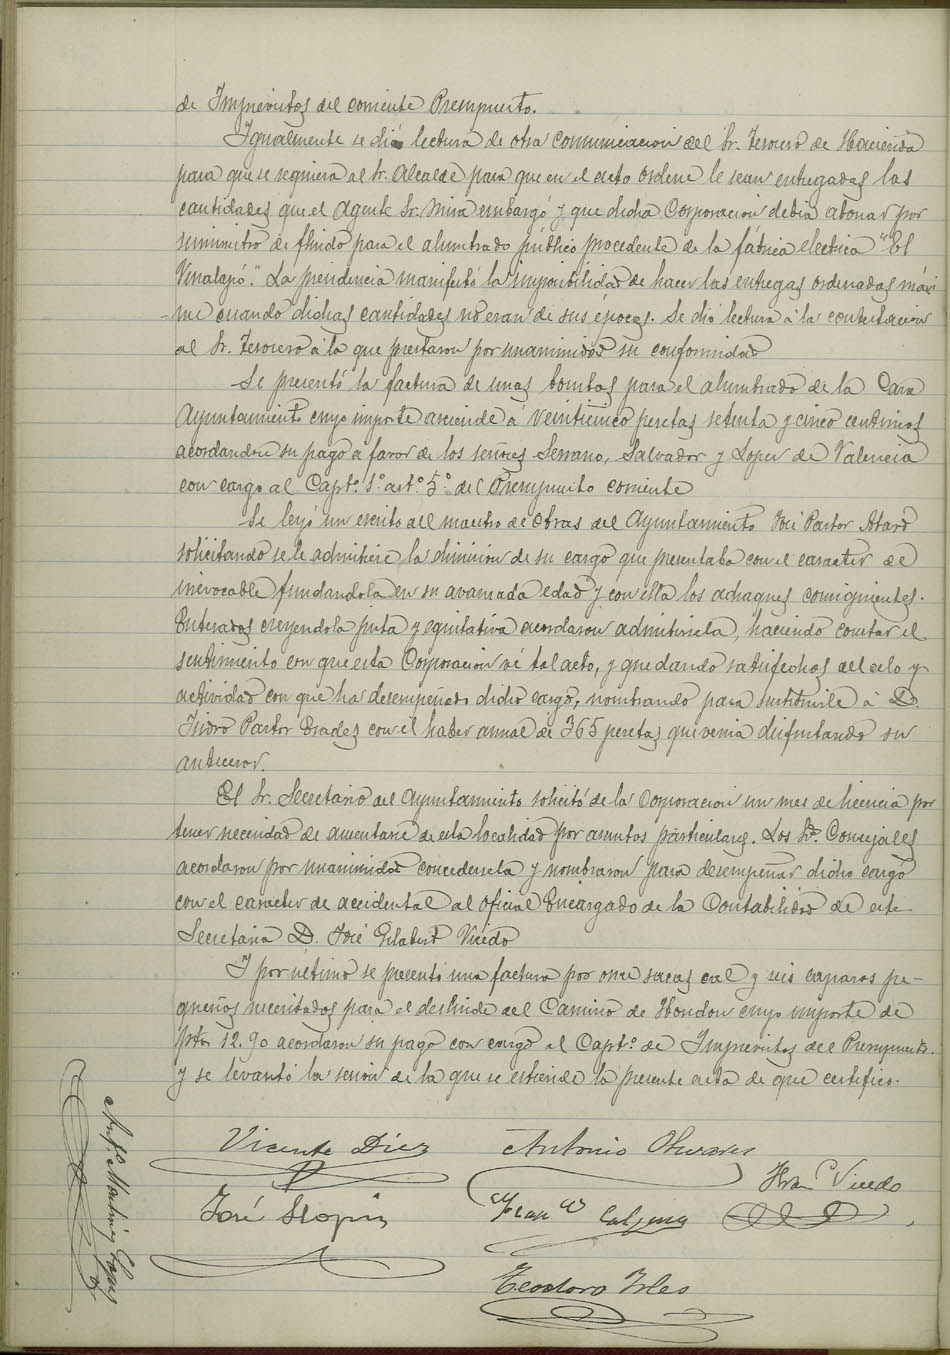 de Imprevistos del corriente Presupuesto.
Igualmente se dió lectura de otra comunicacion del Sr. Tesorero de Hacienda
para que se requiera al Sr. Alcalde para que en el acto ordene le sean entregadas las
cantidades que el Agente Sr. Mira embargó y que dicha Corporacion debia abonar por
suministro de fluido para el alumbrado público procedente de la fábrica electrica "El
Vinalapó." La presidencia manifestó la imposibilidad de hacer las entregas ordenadas máxi
-me cuando dichas cantidades no eran de sus épocas. Se dió lectura á la contestacion
al Sr. Tesorero á la que prestaron por unanimidad su conformidad
Se presentó la factura de unas bombas para el alumbrado de la Casa
Ayuntamiento cuyo importe asciende á veinticinco pesetas setenta y cinco centimos
acordandose su pago a favor de los señores Serrano, Salvador y Lopez de Valencia
con cargo al Capto. 1º arto. 5º del Presupuesto corriente
Se leyó un escrito del maestro de Obras del Ayuntamiento José Pastor
solicitando se le admitiese la dimision de su cargo que presentaba con el caracter de
irrevocable fundandola en su avanzada edad y con ella los achaques consiguientes.
Enterados creyendola justa y equitativa acordaron admitirsela, haciendo constar el
sentimiento con que esta Corporacion vé tal acto, y quedando satisfechos del celo y
actividad con que ha desempeñado dicho cargo, nombrando para sustituirle á D.
Isidro Pastor con el haber anual de 365 pesetas que venia disfrutando su
antecesor.
El Sr. Secretario del Ayuntamiento solicitó de la Corporacion un mes de licencia por
tener necesidad de ausentarse de esta localidad por asuntos particulares. Los Sres. Concejales
acordaron por unanimidad concedersela y nombraron para desempeñar dicho cargo
con el caracter de accidental al oficial Encargado de la Contabilidad de esta
Secretaria D. José Gilabert Vicedo
Y por último se presentó una factura por once sacas cal y seis capazos pe-
queños necesitados para el deslinde del Camino de Hondon cuyo importe de
ptas 12.90 acordaron su pago con cargo al Capto. de Imprevistos del Presupuesto.
Y se levantó la sesion de la que se estiende la presente acta de que certifico.
Vicente Diez Antonio Olivares
Fran.co Vicedo
José Llopis Fran.co Calpena
Teodoro Irles
Anto. Martinez